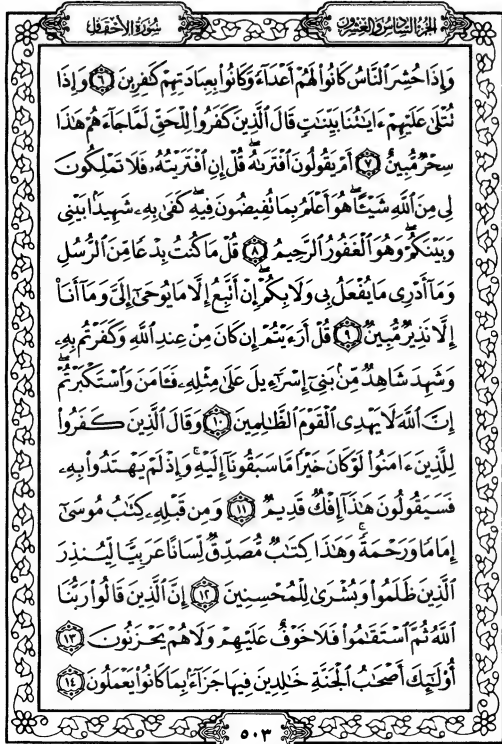 سُورَةُ الأَحْقَافِ
الجُزْءُ السَّادِسُ وَالعِشْرُونَ
وَإِذَا حُشِرَ ٱلنَّاسُ كَانُوا۟ لَهُمْ أَعْدَآءً وَكَانُوا۟ بِعِبَادَتِهِمْ كَٰفِرِينَ ٦ وَإِذَا
تُتْلَىٰ عَلَيْهِمْ ءَايَٰتُنَا بَيِّنَٰتٍ قَالَ ٱلَّذِينَ كَفَرُوا۟ لِلْحَقِّ لَمَّا جَآءَهُمْ هَٰذَا
سِحْرٌ مُّبِينٌ ٧ أَمْ يَقُولُونَ ٱفْتَرَىٰهُ ۖ قُلْ إِنِ ٱفْتَرَيْتُهُۥ فَلَا تَمْلِكُونَ
لِى مِنَ ٱللَّهِ شَيْـًٔا ۖ هُوَ أَعْلَمُ بِمَا تُفِيضُونَ فِيهِ ۖ كَفَىٰ بِهِۦ شَهِيدًۢا بَيْنِى
وَبَيْنَكُمْ ۖ وَهُوَ ٱلْغَفُورُ ٱلرَّحِيمُ ٨ قُلْ مَا كُنتُ بِدْعًا مِّنَ ٱلرُّسُلِ
وَمَآ أَدْرِى مَا يُفْعَلُ بِى وَلَا بِكُمْ ۖ إِنْ أَتَّبِعُ إِلَّا مَا يُوحَىٰٓ إِلَىَّ وَمَآ أَنَا۠
إِلَّا نَذِيرٌ مُّبِينٌ ٩ قُلْ أَرَءَيْتُمْ إِن كَانَ مِنْ عِندِ ٱللَّهِ وَكَفَرْتُم بِهِۦ
وَشَهِدَ شَاهِدٌ مِّنۢ بَنِىٓ إِسْرَٰٓءِيلَ عَلَىٰ مِثْلِهِۦ فَـَٔامَنَ وَٱسْتَكْبَرْتُمْ ۖ
إِنَّ ٱللَّهَ لَا يَهْدِى ٱلْقَوْمَ ٱلظَّٰلِمِينَ ١٠ وَقَالَ ٱلَّذِينَ كَفَرُوا۟
لِلَّذِينَ ءَامَنُوا۟ لَوْ كَانَ خَيْرًا مَّا سَبَقُونَآ إِلَيْهِ ۚ وَإِذْ لَمْ يَهْتَدُوا۟ بِهِۦ
فَسَيَقُولُونَ هَٰذَآ إِفْكٌ قَدِيمٌ ١١ وَمِن قَبْلِهِۦ كِتَٰبُ مُوسَىٰٓ
إِمَامًا وَرَحْمَةً ۚ وَهَٰذَا كِتَٰبٌ مُّصَدِّقٌ لِّسَانًا عَرَبِيًّا لِّيُنذِرَ
ٱلَّذِينَ ظَلَمُوا۟ وَبُشْرَىٰ لِلْمُحْسِنِينَ ١٢ إِنَّ ٱلَّذِينَ قَالُوا۟ رَبُّنَا
ٱللَّهُ ثُمَّ ٱسْتَقَٰمُوا۟ فَلَا خَوْفٌ عَلَيْهِمْ وَلَا هُمْ يَحْزَنُونَ ١٣
أُو۟لَٰٓئِكَ أَصْحَٰبُ ٱلْجَنَّةِ خَٰلِدِينَ فِيهَا جَزَآءًۢ بِمَا كَانُوا۟ يَعْمَلُونَ ١٤
٥٠٣